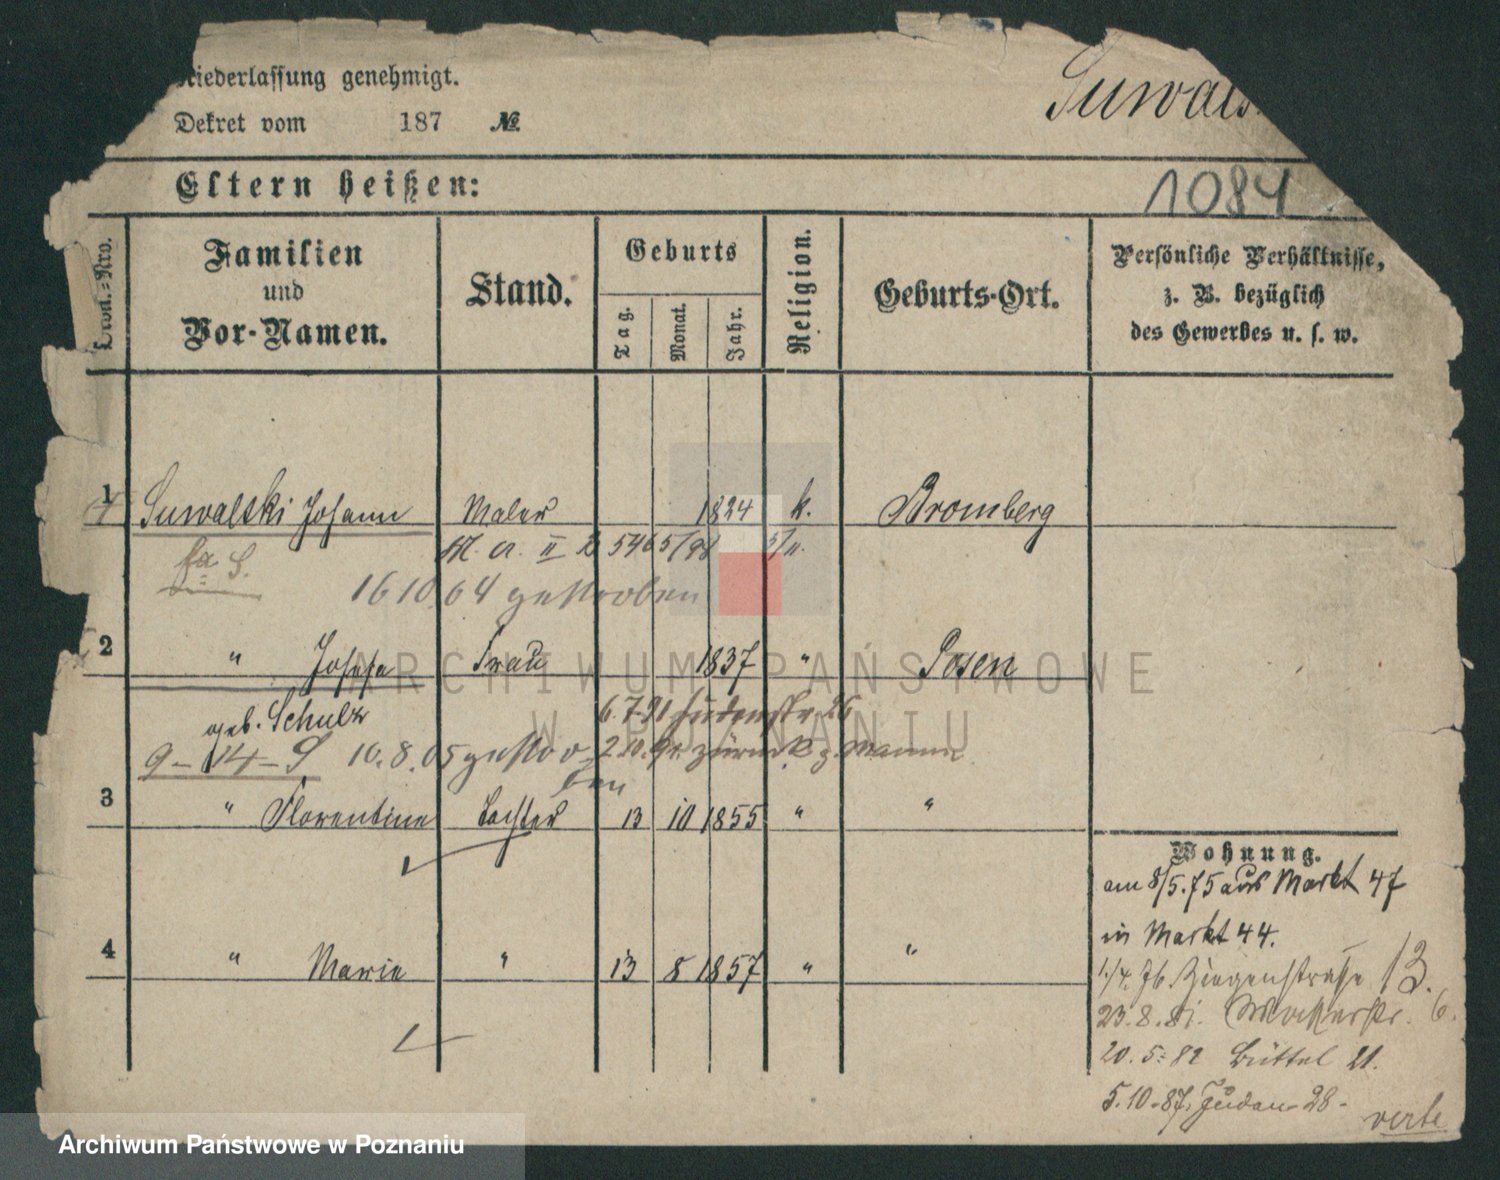 Niederlassung genehmigt.
Suwals
Dekret vom 187 №
Eltern heißen:
1084
Familien und Vor-Namen.
Stand.
Geburts
Tag.
Monat.
Jahr.
Religion.
Geburts-Ort.
Persönliche Verhältnisse,
z. B. bezüglich
des Gewerbes u. s. w.
1 Suwalski Johann Maler 1824 k. Bromberg
16 10 64 gestorben
2 " Josefa Frau 1837 " Posen
geb. Schulz
6.7.91 Judenstr. 26
9-14-S 10.8.05 gestor- zurück z. Mann
ben
3 " Florentine Tochter 13 10 1855 " "
4 " Marie " 13 8 1857 " "
Wohnung.
am 8/5.75 aus Markt 47
in Markt 44.
1./4. 76. Ziegenstraße 13.
23.8.81. Wasserstr. 6.
20.5.82 Büttel 21.
5.10.87. Juden 28-
verte
ARCHIWUM PAŃSTWOWE
W POZNANIU
Archiwum Państwowe w Poznaniu